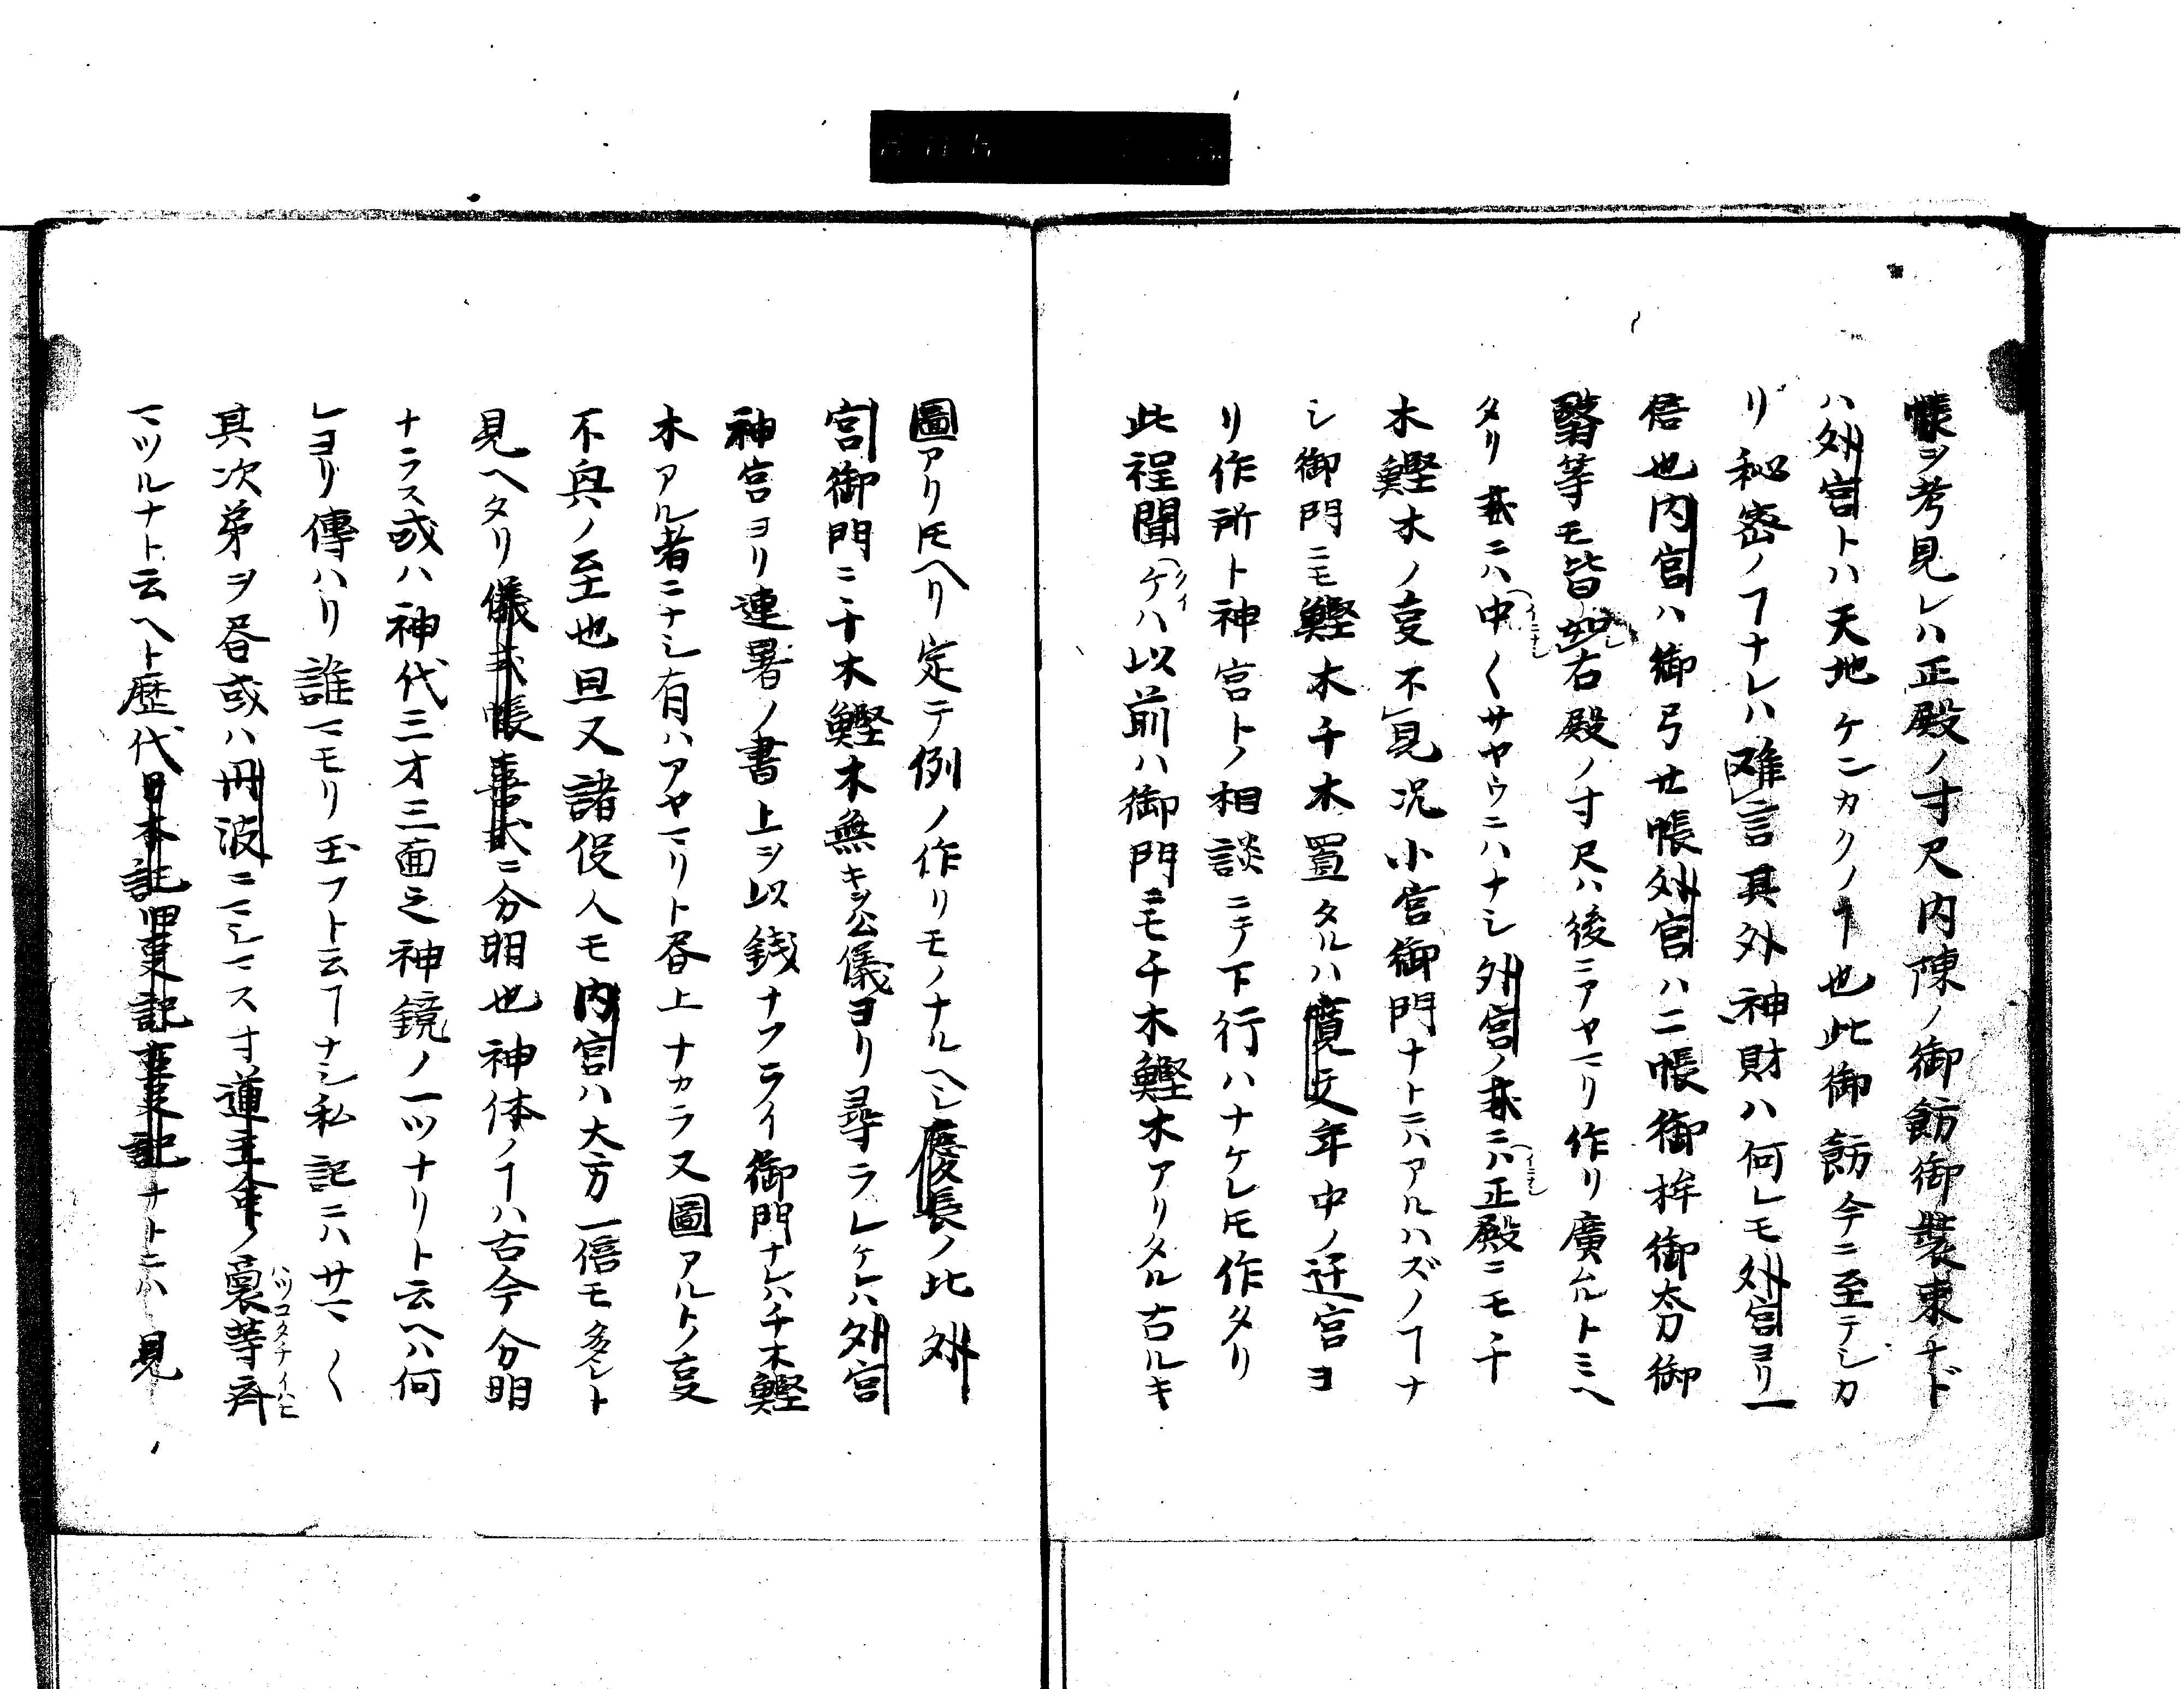 帳ヲ考見レハ正殿ノ寸尺内陳ノ御餝御裝束ナド
ハ外宮トハ天地ケンカクノヿ也此御餝今ニ至テシカ
リ秘密ノヿナレハ難言其外神財ハ何レモ外宮ヨリ一
倍也内宮ハ御弓廿帳外宮ハ二帳御桙御楯御
等モ皆如右殿ノ寸尺ハ後ニアヤマリ作リ廣ルトミヘ
タリ式ニハ中〱サヤウニハナシ外宮ノ式ニハ正殿ニモ千
木鰹木ノ事不見況小宮御門ナトニハアルハズノヿナ
シ御門ニモ鰹木千木置タルハ寛文年中ノ迁宮ヨ
リ作所ト神宮トノ相談ニテ下行ハナケレ𪜈作タリ
此程聞ケハ以前ハ御門ニモ千木鰹木アリタル古ルキ
圖アリ𪜈ヘリ定テ例ノ作リモノナルヘシ慶長ノ比外
宮御門ニ千木鰹木無キヲ公儀ヨリ尋ラレケレハ外宮
神宮ヨリ連署ノ書上ヲ以錢ナフライ御門ナレハ千木鰹
木アル者ニナシ有ハアヤマリト昏上ナカラ又圖アルトノ事
不與ノ至也且又諸役人モ内宮ハ大方一倍モ多シト
見ヘタリ儀式帳喜式ニ分明也神体ノヿハ古今分明
ナラス或ハ神代三才三面之神鏡ノ一ツナリト云ヘハ何
レヨリ傳ハリ誰マモリ玉フト云ヿナシ私記ニハサマ〱
其次第ヲ昏或ハ丹波ニマシマス寸道主命ノ裏等斉
マツルナト云ヘト歴代日本記旧事記古事記ナトニハ見